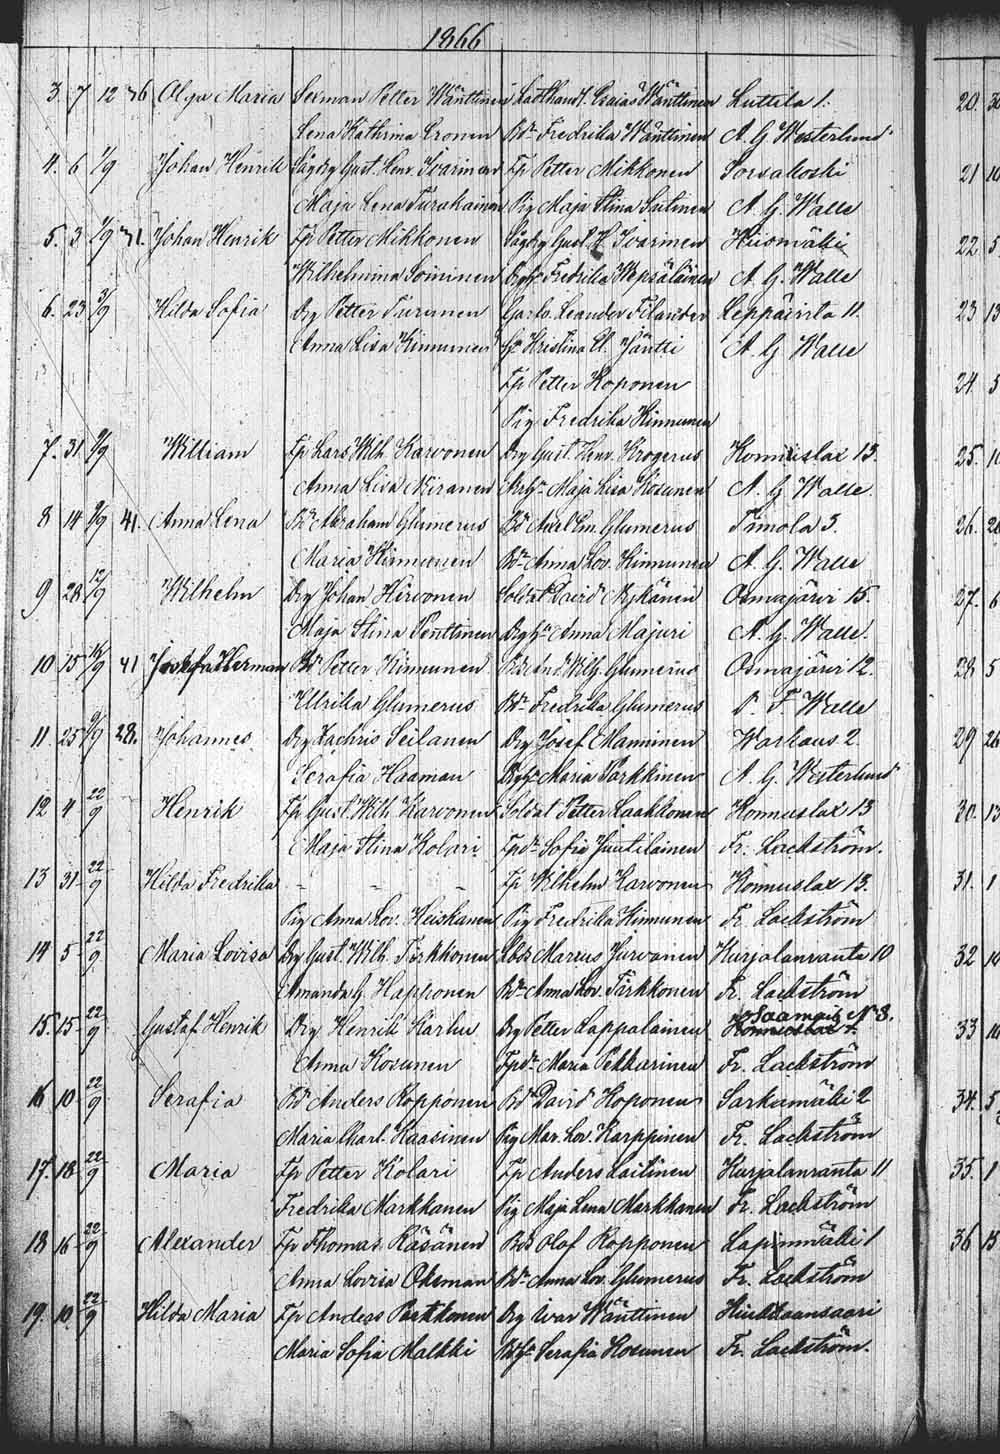 1866
3. 7 12 76 Olga Maria Sexman Petter Wänttinen Wänttinen Luttila 1. 20. 30
Lena Kathrina Cronen Bd. Fredrika Wänttinen A. G. Westerlund
4. 6 Johan Henrik Gust. Henr. Ivarinen Ip Petter Mikkonen Sorsakoski 21 10
Maja Lena Turakainen Pig Maja Stina A. G. Walle
5. 3. Johan Henrik Ip Petter Mikkonen Gust. H. Ivarinen Hiismäki 22. 5
Wilhelmina Soininen Fredrika Wepsäläinen A. G. Walle
6. 23 3/9 Hilda Sofia Drg Petter Turunen Leander Filander Leppävirta 11. 23 13
Anna Lisa Kinnunen Kristina El. Jäntti A. G. Walle
Ip Petter Koponen 24. 5
Pig Fredrika Kinnunen
7. 31 9/9 William Ip Lars Wilh. Karvonen Drg Gust. Henr. Krogerus Konnuslax 13. 25. 10
Anna Lisa Niiranen Maja Lisa Kosunen A. G. Walle.
8 14 9/9 41. Anna Lena Bd Abraham Glumerus Bd Carl Em. Glumerus Timola 3. 26. 28
Maria Kinnunen Bdr Anna Lov. Kinnunen A. G. Walle
9 28 12/9 Wilhelm Drg Johan Hirvonen Soldat David Nykänen Osmajärvi 15. 27. 6
Maja Stina Penttinen Anna Majuri A. G. Walle.
10 15 16/9 41 Herman Bd Petter Kinnunen Wilh. Glumerus Osmajärvi 12. 28 5
Ulrika Glumerus Bdr Fredrika Glumerus F. Walle
11 25 9/9 28. Johannes Drg Zachris Seilanen Drg Josef Manninen Warkaus 2. 29 26
Serafia Haaman Maria Parkkinen A. G. Westerlund
12 4 22/9 Henrik Ip Gust. Wilh. Karvonen Soldat Petter Laakkonen Konnuslax 13 30. 13
Maja Stina Kolari Ipdr Sofia Juutilainen Fr. Lackström.
13 31 22/9 Hilda Fredrika - - - Ip Wilhelm Karvonen Konnuslax 13. 31. 1
Pig Anna Lov. Heiskanen Pig Fredrika Kinnunen Fr. Lackström
14 5 22/9 Maria Lovisa Drg Gust. Wilh. Tirkkonen Marius Jurvanen Kurjalanranta 10 32 10
Amanda G. Happonen Bdr Anna Lov. Tirkkonen Fr. Lackström
15. 15 22/9 Gustaf Henrik Drg Henrik Karhu Drg Petter Lappalainen Saamais No 8. 33 16
Anna Kosunen Ipdr Maria Pekkarinen Fr. Lackström
16 10 22/9 Serafia Bd Anders Kopponen Bd David Koponen Sarkamäki 2 34. 5
Maria Charl. Kaasinen Pig Mar. Lov. Karppinen Fr. Lackström
17. 18 22/9 Maria Ip Petter Kolari Ip Anders Laitinen Kurjalanranta 11 35. 1
Fredrika Markkanen Pig Maja Lena Markkanen Fr. Lackström
18 16 22/9 Alexander Ip Thomas Räsänen Bds Olof Kopponen Lapinmäki 1 36 15
Anna Lovisa Oksman Bdr Anna Lov. Glumerus Fr. Lackström
19. 10. 22/9 Hilda Maria Ip Anders Parkkonen Drg Ivar Wänttinen Hiukkaansaari
Maria Sofia Malkki Serafia Kosunen Fr. Lackström.